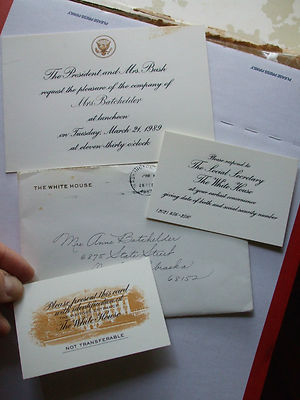 PLEASE PRESS FIRMLY
PLEASE PRESS FIRMLY
The President and Mrs. Bush
request the pleasure of the company of
Mrs. Batchelder
at luncheon
on Tuesday, March 21, 1989
at eleven-thirty o'clock
Please respond to
The Social Secretary
The White House
at your earliest convenience
giving date of birth and social security number
THE WHITE HOUSE
Mrs. Anne Batchelder
6875 State Street
68152
Please present this card
with identification at
The White House
NOT TRANSFERABLE